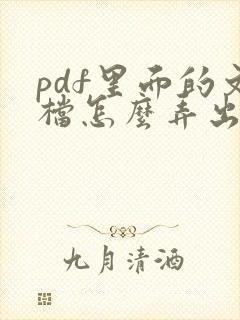 pdf里而的文
檔怎麼弄出
九月清酒